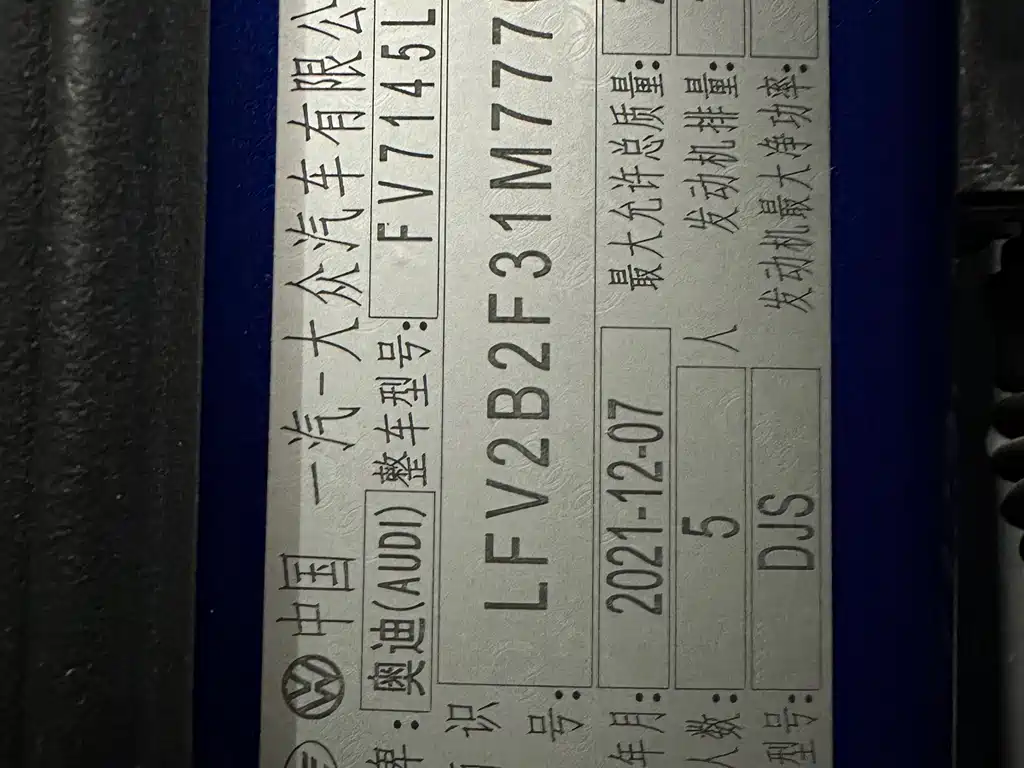 中国 一汽-大众汽车有限公
牌: 奥迪(AUDI) 整车型号: FV7145L
识 LFV2B2F31M777
号:
年月: 2021-12-07 最大允许总质量:
人数: 5 人 发动机排量:
型号: DJS 发动机最大净功率: